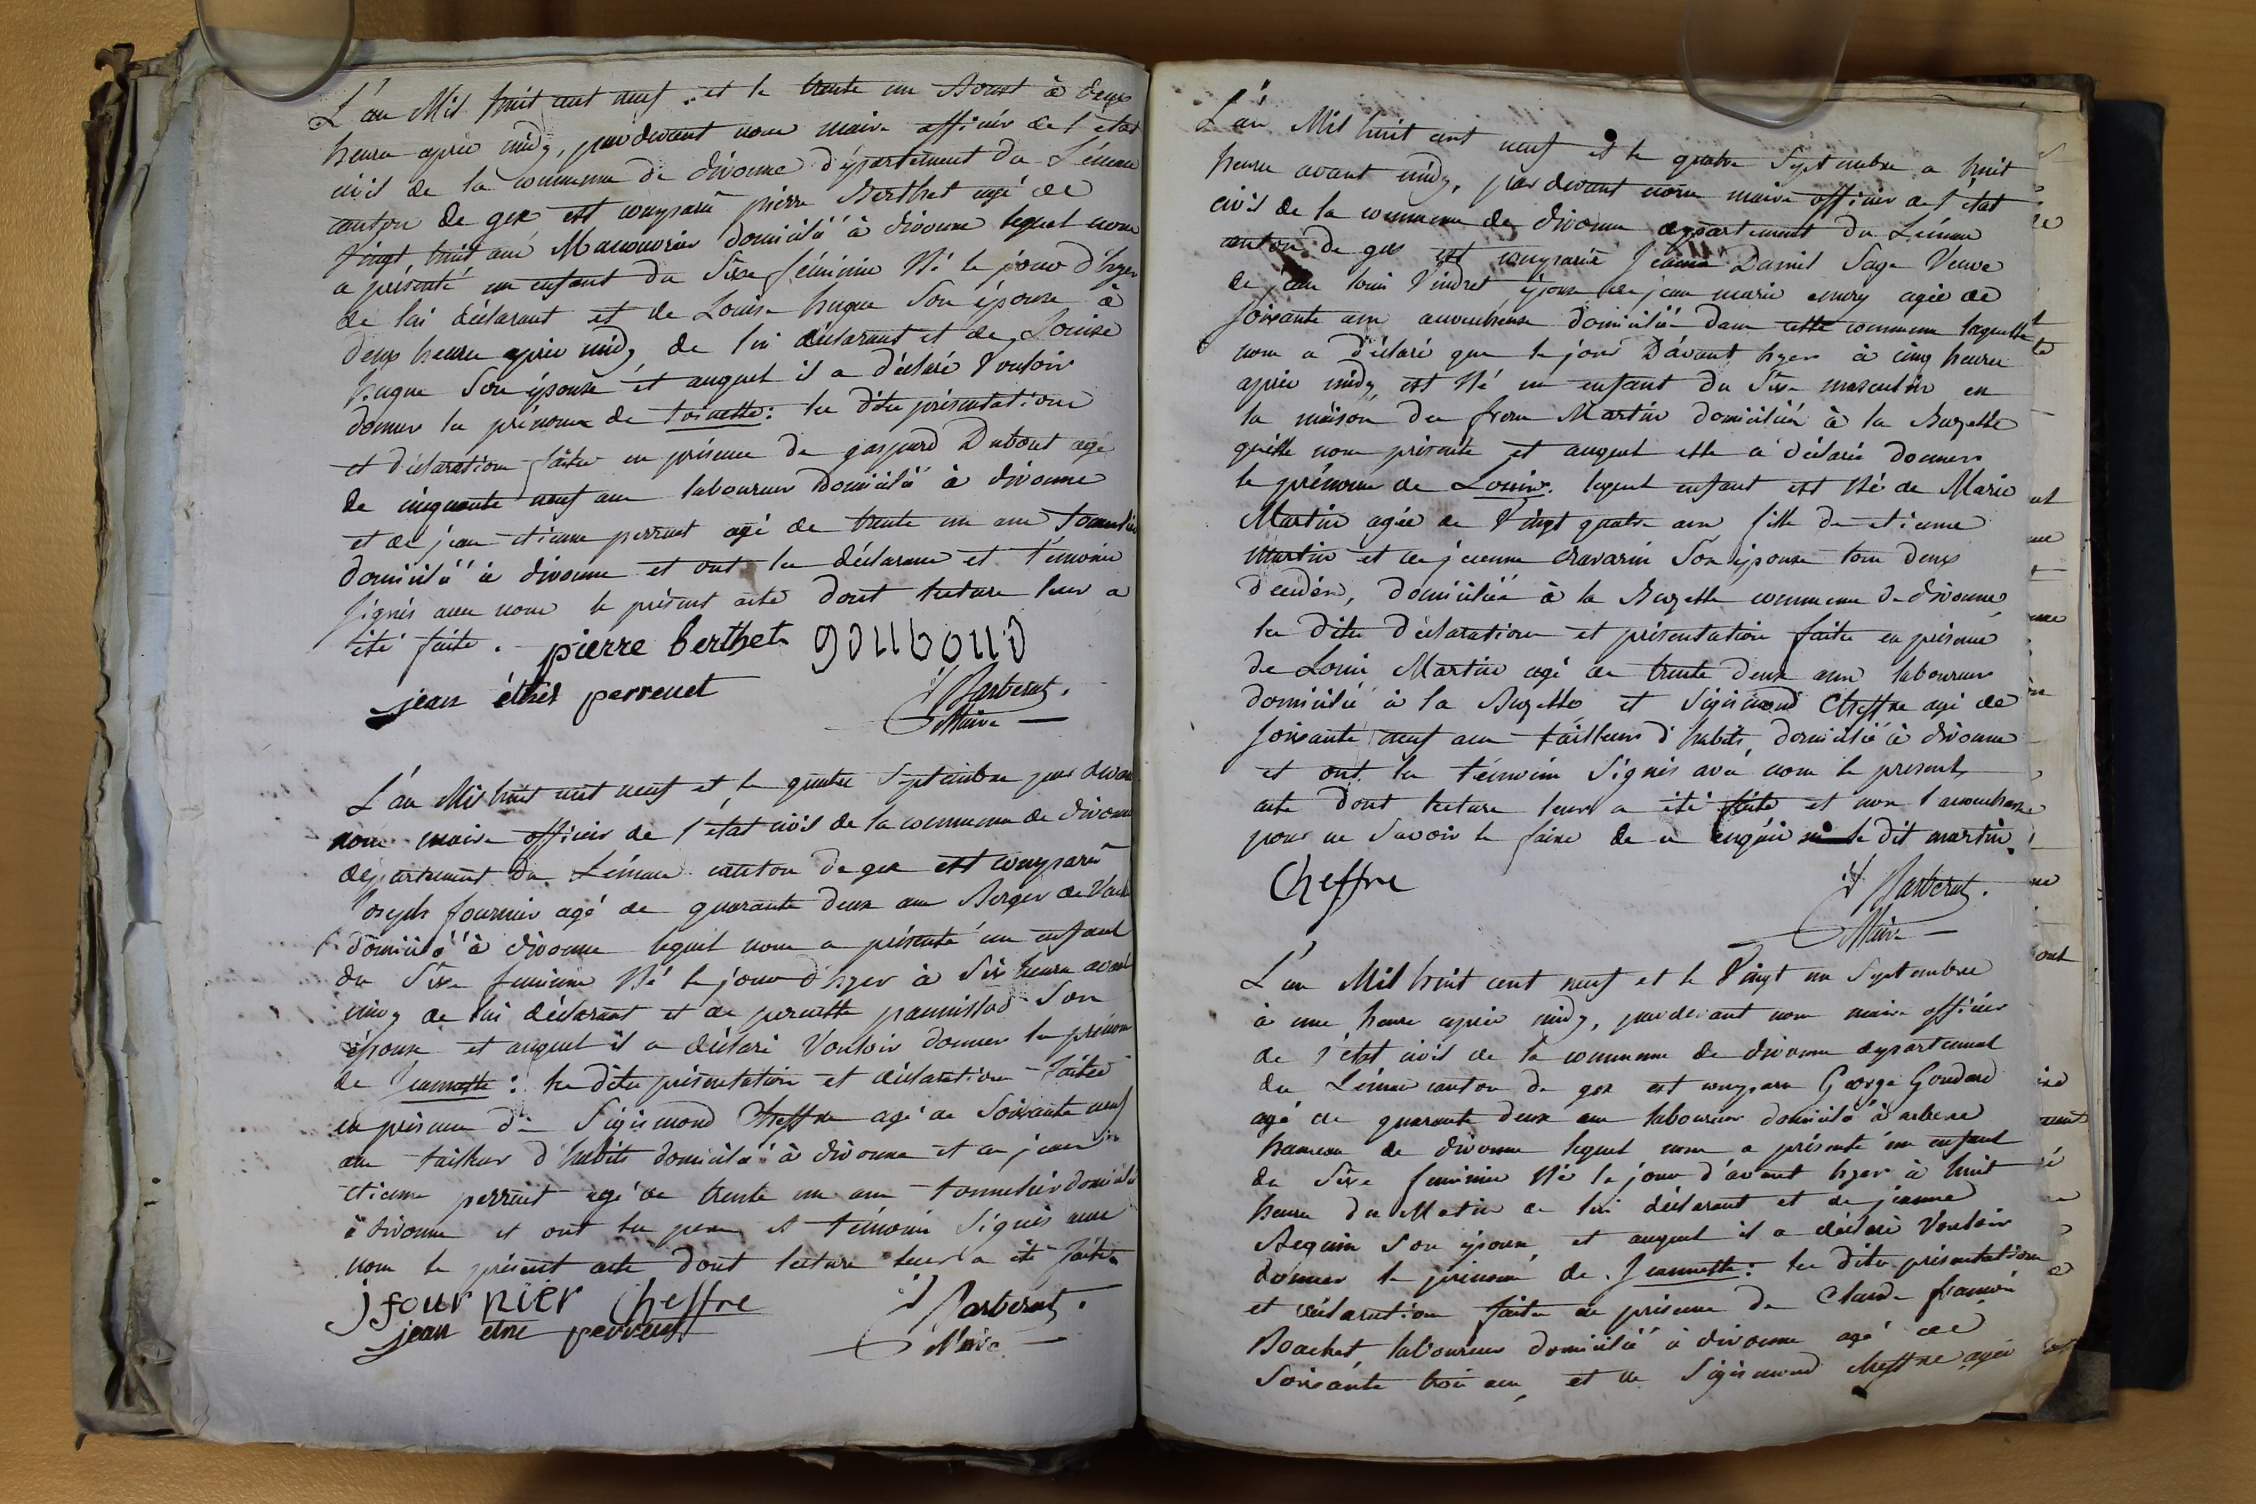 L'an Mil huit cent neuf et le trente un Aoust à deux
heures après midy, par devant nous maire officier de l'état
civil de la commune de divonne département du Léman
canton de gex est comparu pierre Berthet agé de
vingt huit ans Manouvrier domicilié à divonne lequel nous
a présenté un enfant du Sexe féminin Né le jour d'hyer
de lui déclarant et de Louise hugue Son épouse à
deux heures après midy de lui déclarant et de Louise
hugue Son épouse et auquel il a déclaré Vouloir
donner le prénom de toinette : les dites présentations
et déclaration faites en présence de gaspard Dubout agé
de cinquante neuf ans laboureur domicilié à divonne
et de jean etienne perruet agé de trente un ans tonnelier
domicilié à divonne et ont les déclarant et témoins
signés avec nous le présent acte dont lecture leur a
été faite .
pierre berthet
jean etne perreuet
J Barberat.
Maire
L'an Mil huit cent neuf et le quatre Septembre par devant
nous maire officier de l'état civil de la commune de divonne
département du Léman canton de gex est comparu
Joseph fournier agé de quarante deux ans Berger de
domicilié à divonne lequel nous a présenté un enfant
du Sexe feminin Né le jour d'hyer à Six heures avant
midy de lui déclarant et de pernette Son
épouse et auquel il a déclaré Vouloir donner le prénom
de Jeannette : les dites présentation et déclaration faites
en présence de Sigismond Cheffre agé de Soixante neuf
ans tailleur d'habits domicilié à divonne et de jean
etienne perruet agé de trente un ans tonnelier domicilié
à divonne et ont les pere et témoins Signés avec
nous le présent acte dont lecture leur a été faite
jfournier Cheffre
jean etne perreuet
J Barberat.
Maire
L'an Mil huit cent neuf et le quatre Septembre a huit
heures avant midy, par devant nous maire officier de l'état
civil de la commune de divonne département du Léman
canton de gex est comparue Jeanne Daniel Sage Veuve
de jean louis Vindret épouse de jean marie emery agée de
soixante ans accoucheuse domiciliée dans cette commune laquelle
nous a déclaré que le jour D'avant hyer à cinq heures
après midy est Né un enfant du Sexe masculin en
la maison des freres Martin domiciliés à la Buzette
qu'elle nous présente et auquel elle a déclaré donner
le prénom de Louis. lequel enfant est Né de Marie
Martin agée de Vingt quatre ans fille de etienne
Martin et de jeanne chavarin Son épouse tous deux
décédés, domiciliée à la Buzette commune de divonne
les dites déclaration et présentation faites en présence
de Louis Martin agé de trente deux ans laboureur
domicilié à la Buzette et Sigismond Cheffre agé de
soixante neuf ans tailleur d'habits, domicilié à divonne
et ont les témoins Signés avec nous le present
acte dont lecture leur a été faite et non l'accoucheuse
pour ne savoir le faire de ce enquise ni le dit martin.
Cheffre
J Barberat.
Maire
L'an Mil huit cent neuf et le Vingt un Septembre
à une heure après midy, par devant nous maire officier
de l'état civil de la commune de divonne département
du Léman canton de gex est comparu George Goudard
agé de quarante deux ans laboureur domicilié à arbere
hameau de divonne lequel nous a présenté un enfant
du Sexe feminin Né le jour d'avant hyer à huit
heures du Matin de lui déclarant et de jeanne
Requin Son épouse, et auquel il a déclaré Vouloir
donner le prénom de Jeannette : les dites présentation
et déclaration faites en présence de Claude françois
Bouchet laboureur domicilié à divonne agé de
Soixante trois ans, et de Sigismond cheffre agé